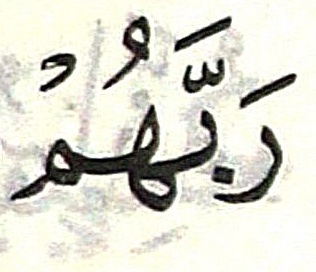 رَبَّهُمْ